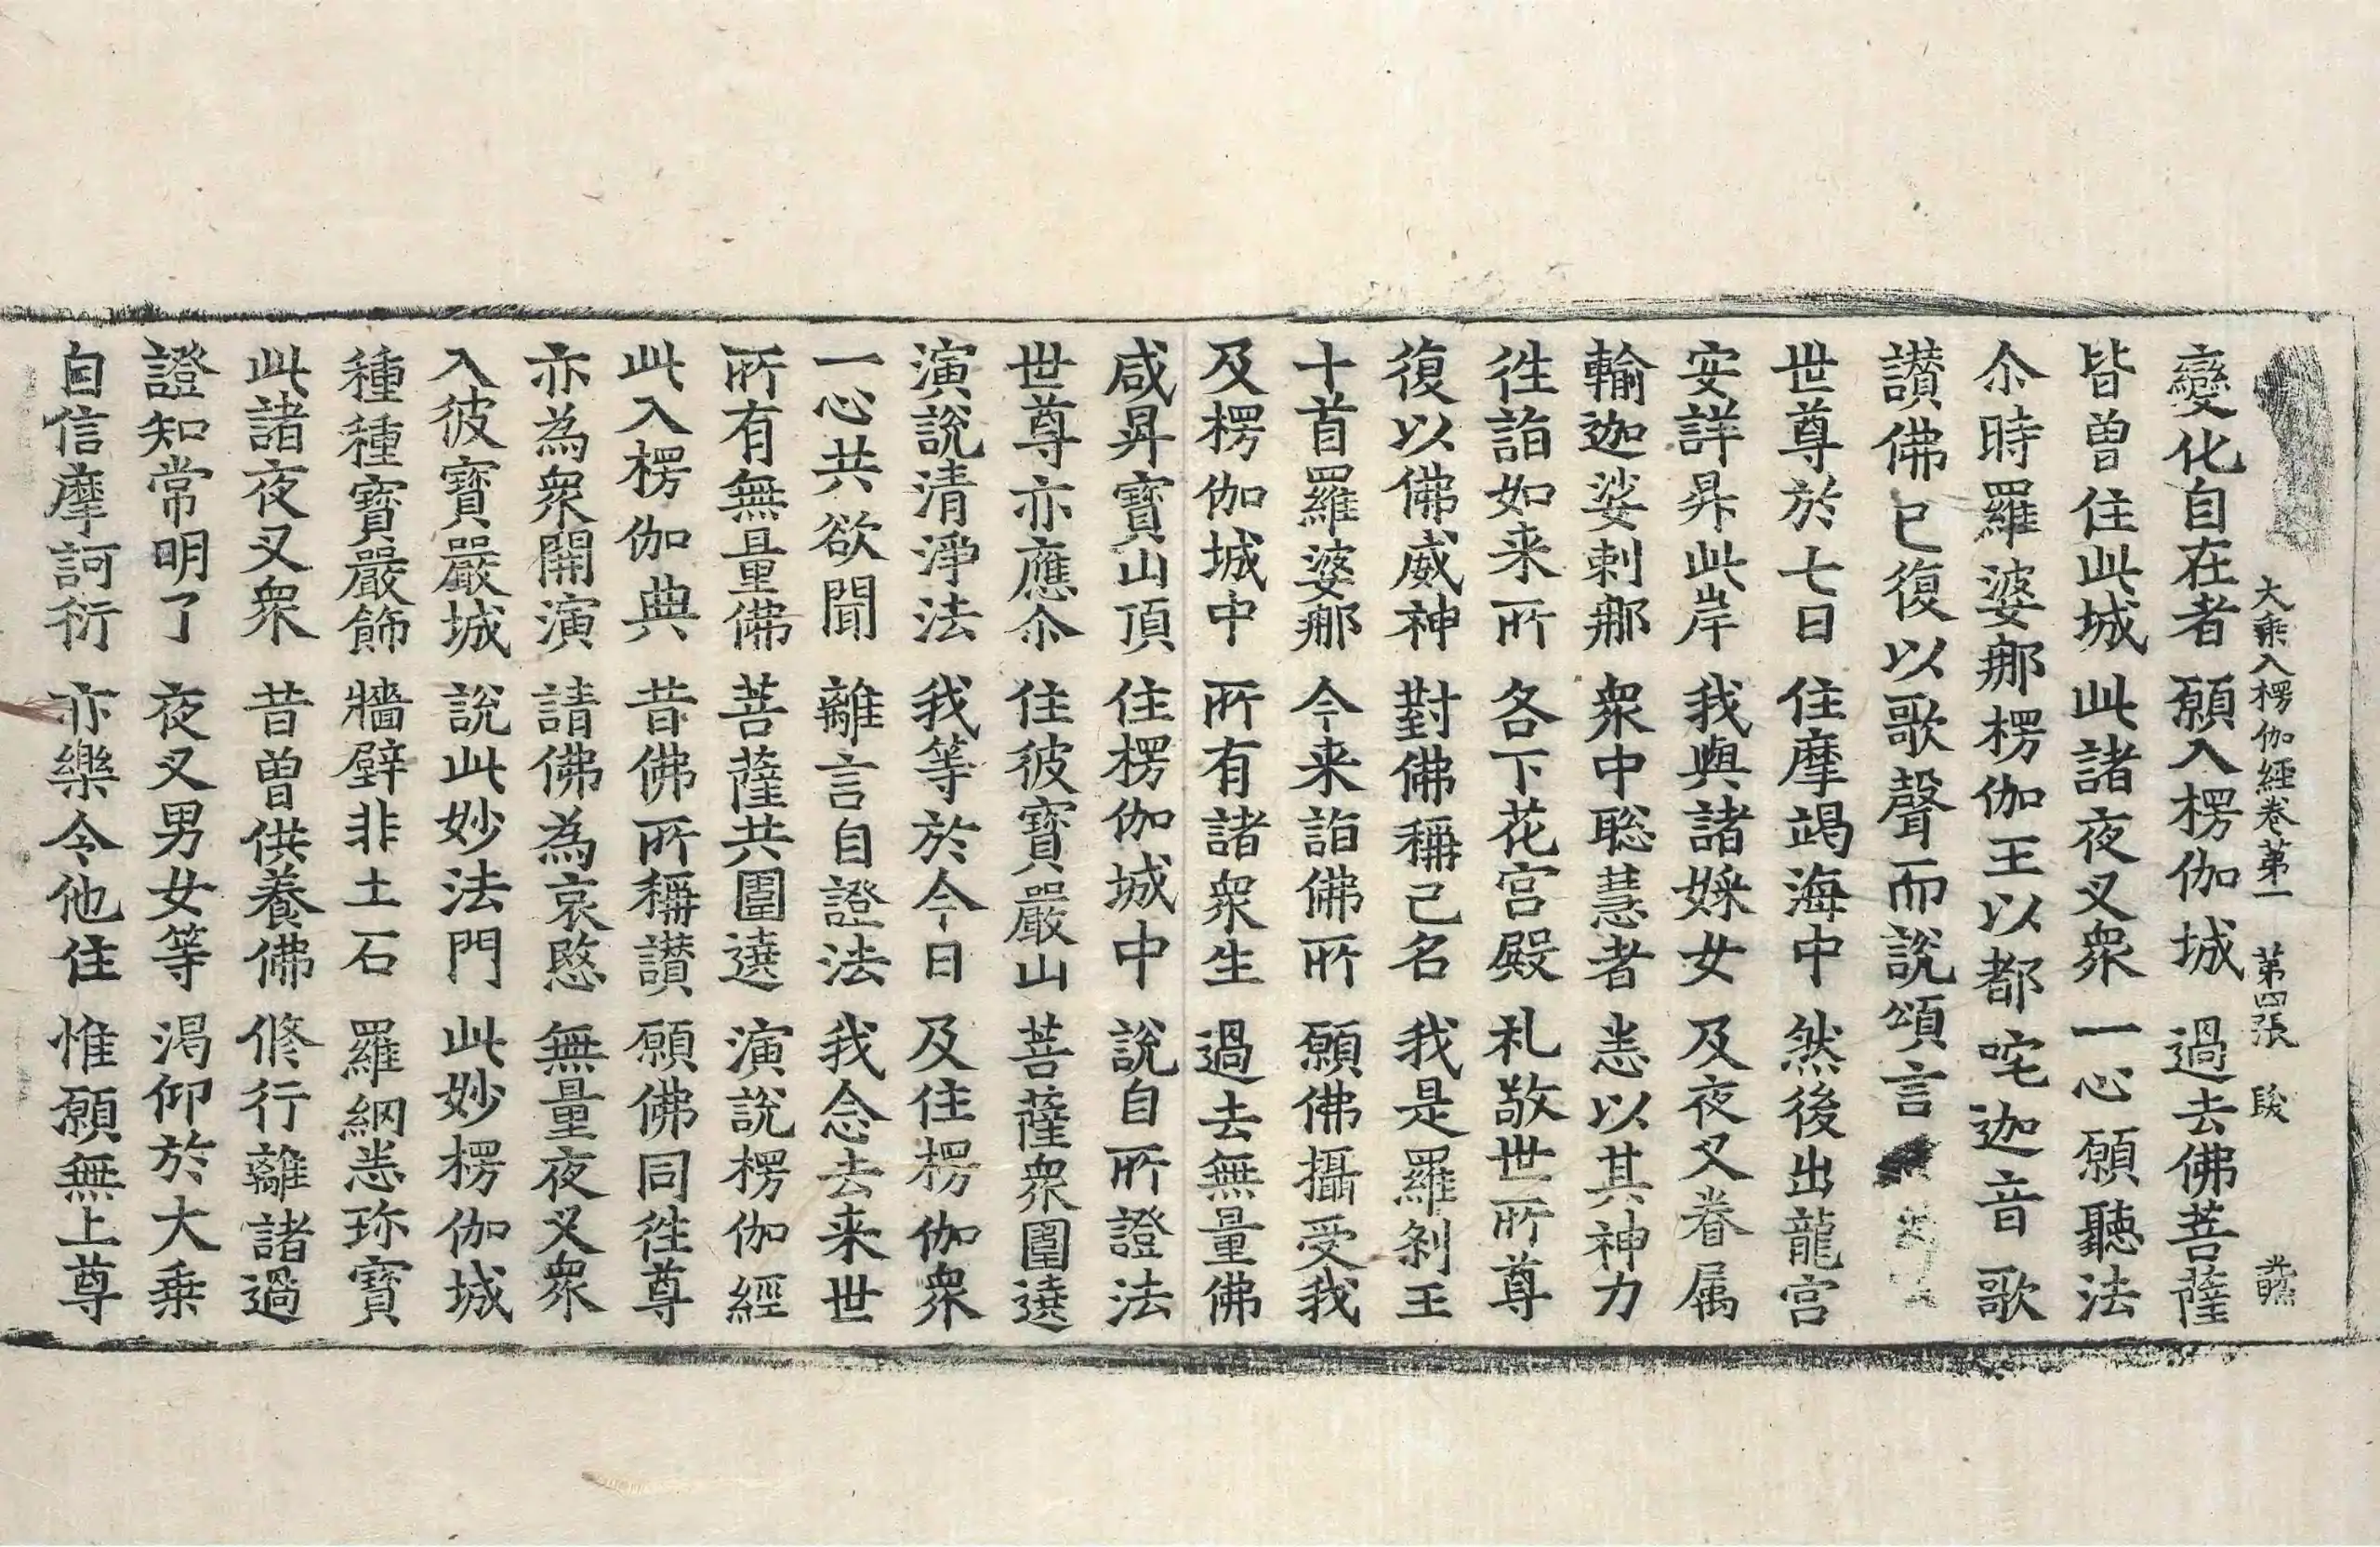 大乘入楞伽經卷第一 第四張 段
變化自在者 願入楞伽城 過去佛菩薩
皆曾住此城 此諸夜叉衆 一心願聽法
尒時羅婆那楞伽王以都咤迦音歌
讃佛已復以歌聲而說頌言
世尊於七日 住摩竭海中 然後出龍宮
安詳昇此岸 我與諸婇女 及夜叉眷属
輸迦娑剌那 衆中聡慧者 悉以其神力
徃詣如来所 各下花宮殿 礼敬世所尊
復以佛威神 對佛稱己名 我是羅剎王
十首羅婆那 今来詣佛所 願佛攝受我
及楞伽城中 所有諸衆生 過去無量佛
咸昇寶山頂 住楞伽城中 說自所證法
世尊亦應尒 住彼寶嚴山 菩薩衆圍遶
演說清淨法 我等於今日 及住楞伽衆
一心共欲聞 離言自證法 我念去来世
所有無量佛 菩薩共圍遶 演說楞伽經
此入楞伽典 昔佛所稱讃 願佛同徃尊
亦為衆開演 請佛為哀愍 無量夜叉衆
入彼寶嚴城 說此妙法門 此妙楞伽城
種種寶嚴飾 牆壁非土石 羅網悉珎寶
此諸夜叉衆 昔曾供養佛 修行離諸過
證知常明了 夜叉男女等 渴仰於大乗
自信摩訶衍 亦樂令他住 惟願無上尊